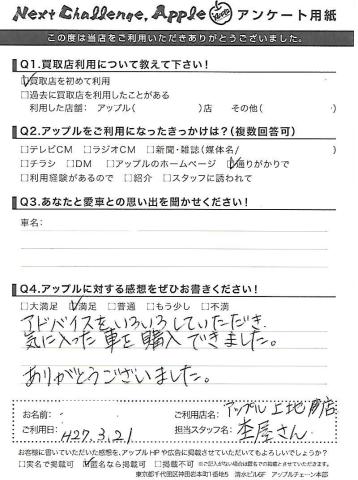 Next Challenge, Apple アンケート用紙
この度は当店をご利用いただきありがとうございました。
Q1.買取店利用について教えて下さい!
□買取店を初めて利用
□過去に買取店を利用したことがある
利用した店舗: アップル( )店 その他( )
Q2.アップルをご利用になったきっかけは?(複数回答可)
□テレビCM □ラジオCM □新聞・雑誌(媒体名/ )
□チラシ □DM □アップルのホームページ □通りがかりで
□利用経験があるので □紹介 □スタッフに誘われて
Q3.あなたと愛車との思い出を聞かせください!
車名:
Q4.アップルに対する感想をぜひお書きください!
□大満足 □満足 □普通 □もう少し □不満
アドバイスをいろいろしていただき、
気に入った車を購入できました。
ありがとうございました。
お名前: ご利用店名: アップル 上地 店
ご利用日: H27.3.21 担当スタッフ名: 屋さん
お客様に書いていただいた感想を、アップルHPや広告に掲載させていただいてもよろしいでしょうか?
□実名で掲載可 □匿名なら掲載可 □掲載不可 ※ご記入がない場合は匿名での掲載とさせていただきます。
東京都千代田区神田岩本町1番地5 清水ビル6F アップルチェーン本部